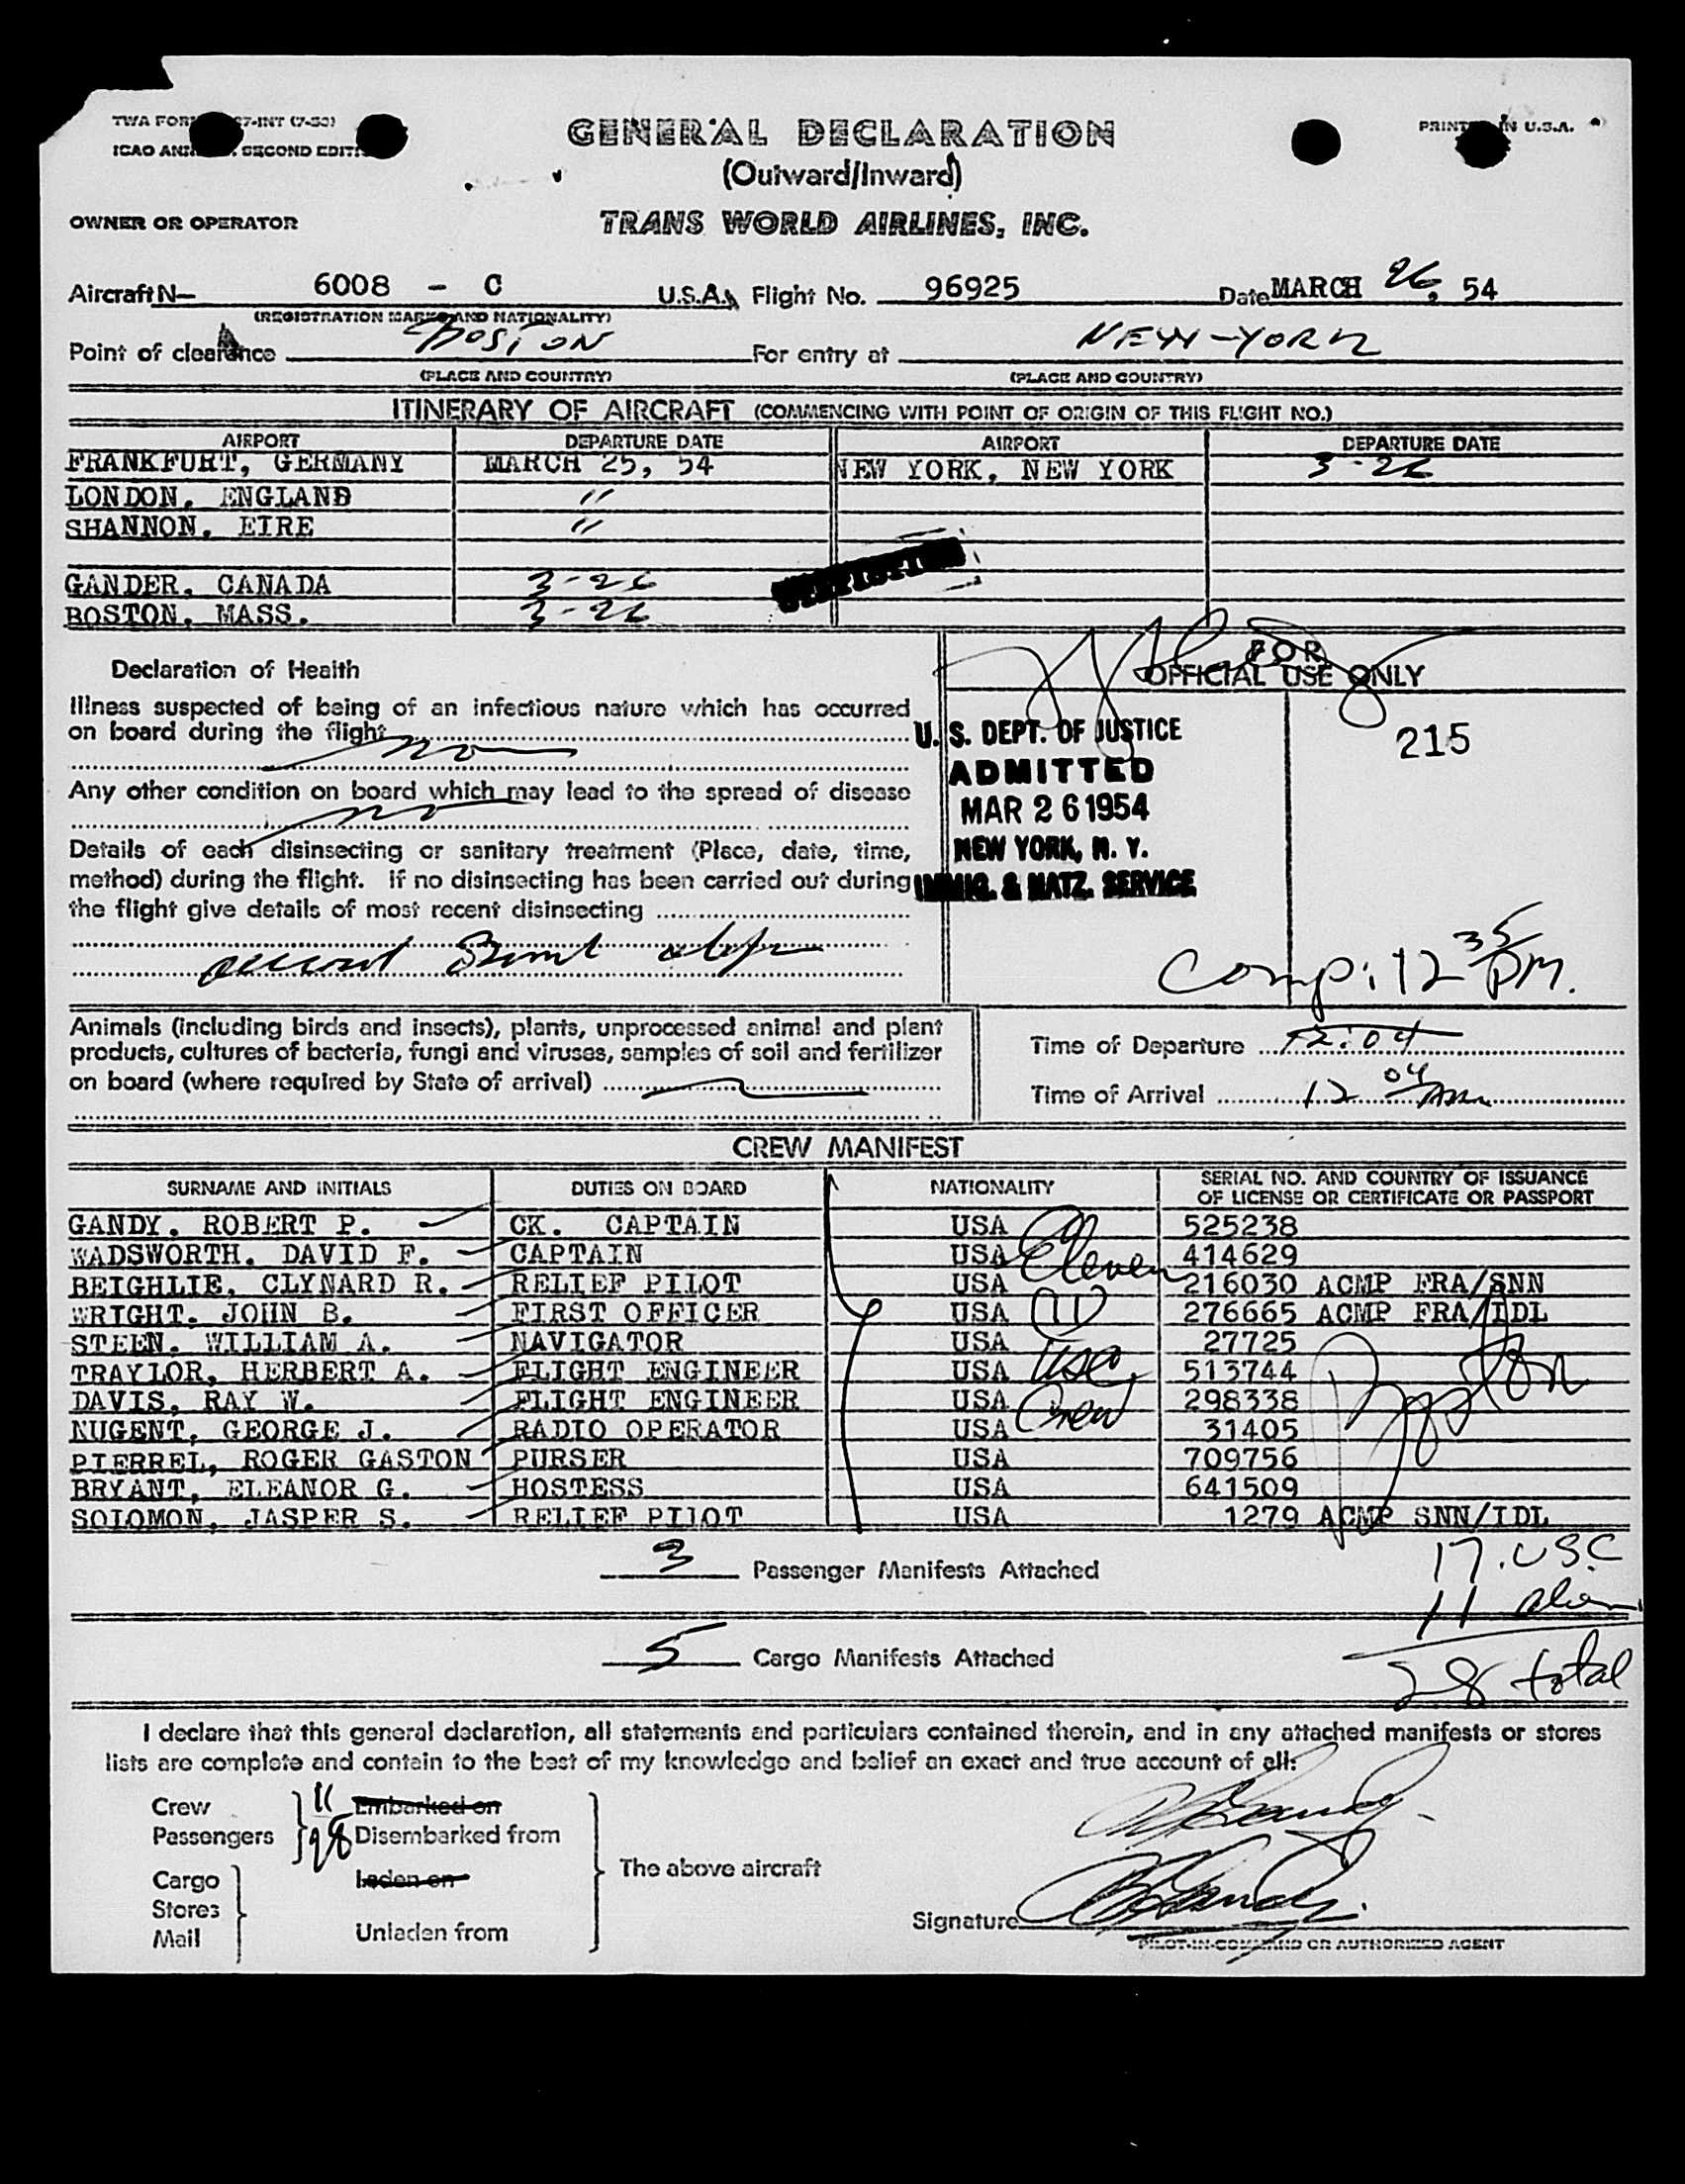 TWA FORM 7-INT (7-53)
ICAO ANNEX SECOND EDITION
PRINTED IN U.S.A.
GENERAL DECLARATION
(Outward/Inward)
OWNER OR OPERATOR TRANS WORLD AIRLINES, INC.
Aircraft N— 6008 - C U.S.A. Flight No. 96925 Date MARCH 26, 54
(REGISTRATION MARKS AND NATIONALITY)
Point of clearance BOSTON For entry at NEW-YORK
(PLACE AND COUNTRY) (PLACE AND COUNTRY)
ITINERARY OF AIRCRAFT (COMMENCING WITH POINT OF ORIGIN OF THIS FLIGHT NO.)
AIRPORT DEPARTURE DATE AIRPORT DEPARTURE DATE
FRANKFURT, GERMANY MARCH 25, 54 NEW YORK, NEW YORK 3-26
LONDON, ENGLAND "
SHANNON, EIRE "
GANDER, CANADA 3-26
BOSTON, MASS. 3-26
Declaration of Health
Illness suspected of being of an infectious nature which has occurred
on board during the flight
no
Any other condition on board which may lead to the spread of disease
no
Details of each disinsecting or sanitary treatment (Place, date, time,
method) during the flight. If no disinsecting has been carried out during
the flight give details of most recent disinsecting
FOR
OFFICIAL USE ONLY
U. S. DEPT. OF JUSTICE
ADMITTED
MAR 26 1954
NEW YORK, N. Y.
IMMIG. & NATZ. SERVICE
215
Comp: 12 35 PM.
Animals (including birds and insects), plants, unprocessed animal and plant
products, cultures of bacteria, fungi and viruses, samples of soil and fertilizer
on board (where required by State of arrival)
Time of Departure 12:04
Time of Arrival 12 04
CREW MANIFEST
SURNAME AND INITIALS DUTIES ON BOARD NATIONALITY SERIAL NO. AND COUNTRY OF ISSUANCE OF LICENSE OR CERTIFICATE OR PASSPORT
GANDY, ROBERT P. CK. CAPTAIN USA 525238
WADSWORTH, DAVID F. CAPTAIN USA 414629
BEIGHLIE, CLYNARD R. RELIEF PILOT USA 216030 ACMP FRA/SNN
WRIGHT, JOHN B. FIRST OFFICER USA 276665 ACMP FRA/IDL
STEEN, WILLIAM A. NAVIGATOR USA 27725
TRAYLOR, HERBERT A. FLIGHT ENGINEER USA 513744
DAVIS, RAY W. FLIGHT ENGINEER USA 298338
NUGENT, GEORGE J. RADIO OPERATOR USA 31405
PIERREL, ROGER GASTON PURSER USA 709756
BRYANT, ELEANOR G. HOSTESS USA 641509
SOLOMON, JASPER S. RELIEF PILOT USA 1279 ACMP SNN/IDL
Eleven
(11)
USC
Crew
3 Passenger Manifests Attached
17 . USC
11 alien
28 total
5 Cargo Manifests Attached
I declare that this general declaration, all statements and particulars contained therein, and in any attached manifests or stores
lists are complete and contain to the best of my knowledge and belief an exact and true account of all:
Crew 11 Embarked on
Passengers 28 Disembarked from
Cargo Laden on
Stores
Mail Unladen from
The above aircraft
Signature
PILOT-IN-COMMAND OR AUTHORIZED AGENT